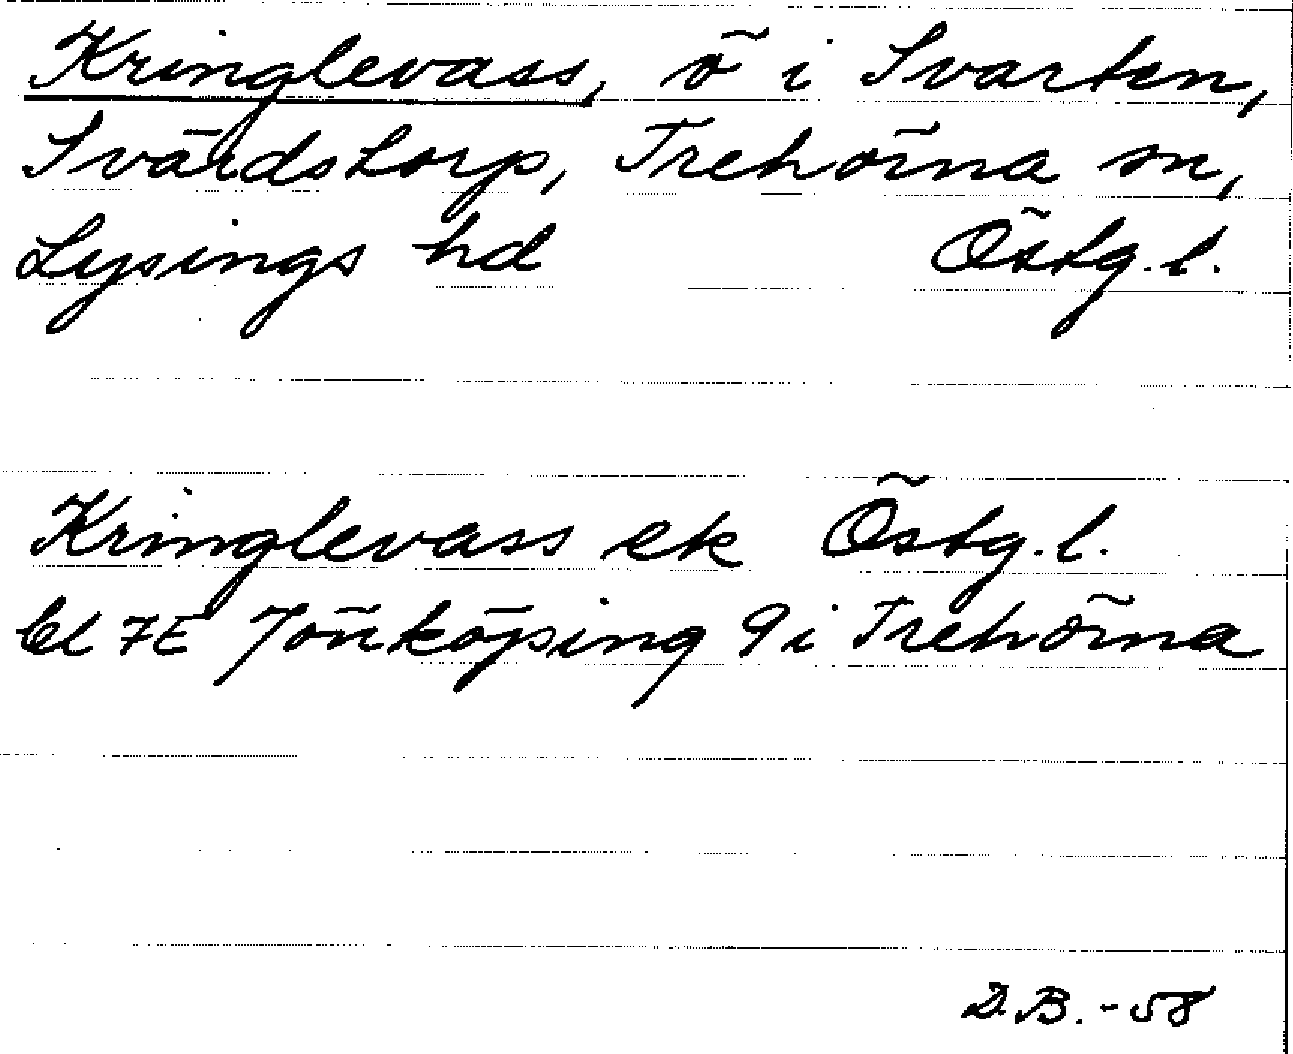 Kringlevass, ö i Svarten,
Svärdstorp, Trehörna sn,
Lysings hd Östg.l.
Kringlevass ek Östg.l.
bl 7E Jönköping 9i Trehörna
D.B.-58